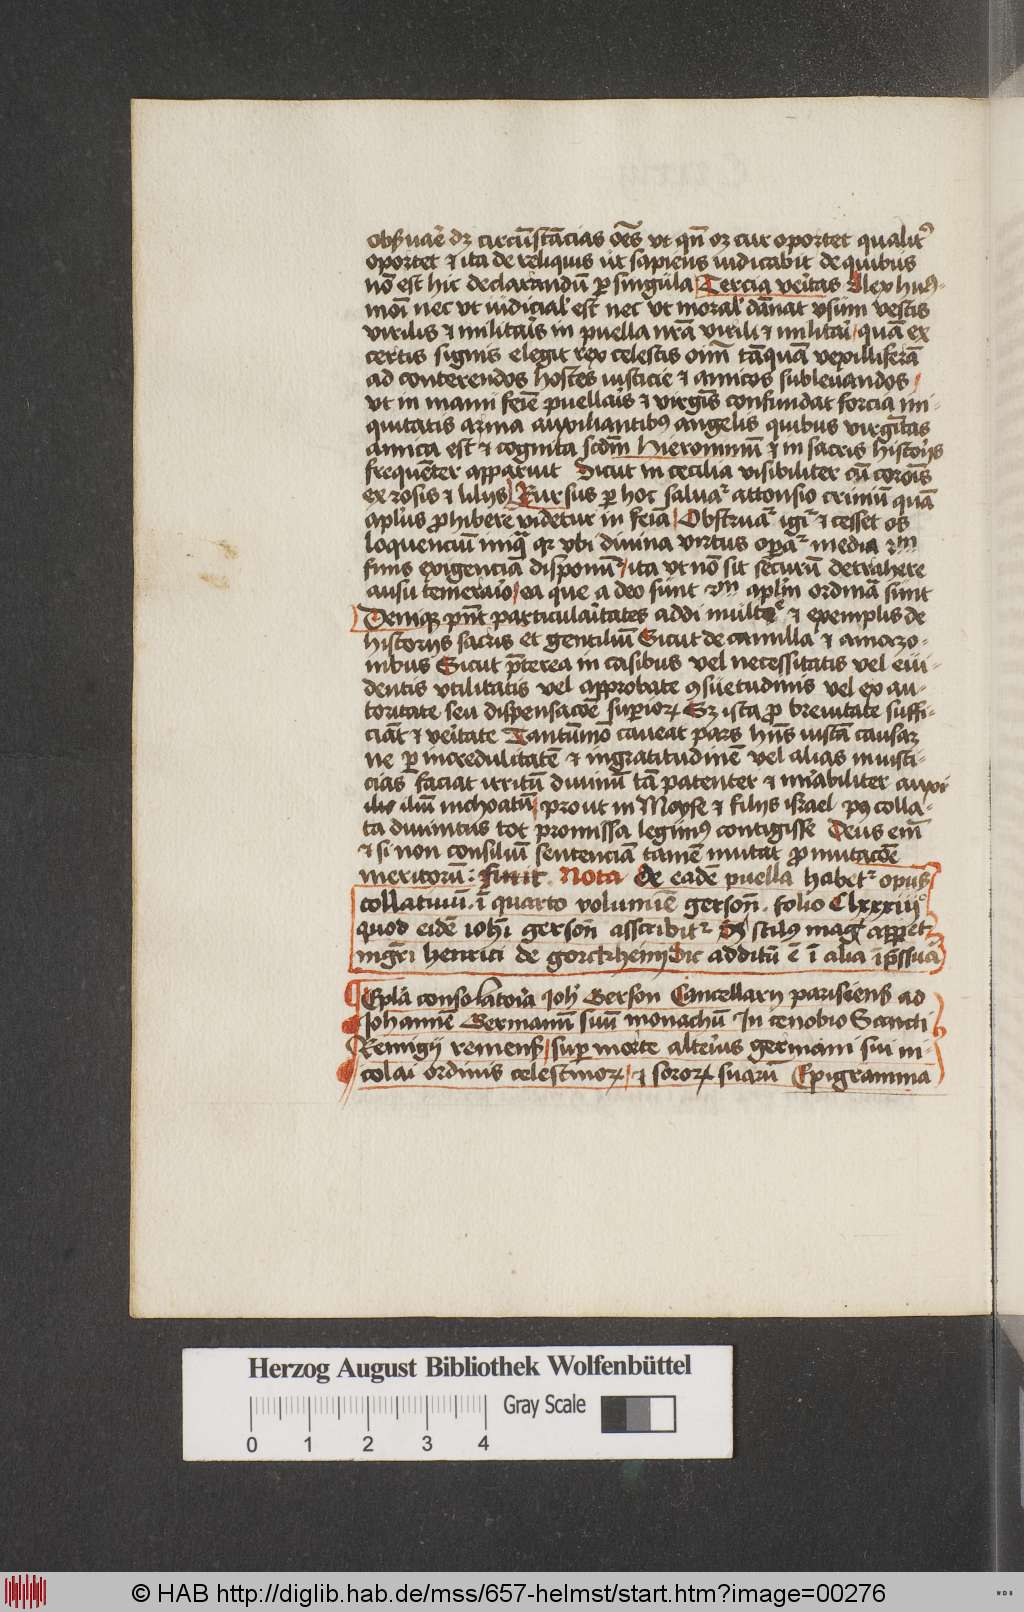 obẜuaẽ dꝫ circũstãcias oẽs vt qñ oꝫ cur oportet qualitʼ
oportet ⁊ ita de reliquis ut sapiens iudicabit de quibus
nõ est hic declarandũ ꝑ singula Tercia veĩtas Slex huꝰ
modi nec vt iudicialʼ est nec vt moralʼ dãnat vsum vestis
virilis ⁊ militaĩs in puella nr̃a virili ⁊ militaĩ quã ex
certis signis elegit rex celestis oĩm tãquã vexilliferã
ad conterendos hostes iusticie ⁊ amicos subleuandos
vt in manu feĩe puellaĩs ⁊ virgĩs confundat forcia ini-
quitatis arma auxiliantibꝰ angelis quibus virgĩtas
amica est ⁊ cognita scd̃m hieronimũ ⁊ in sacris historijs
frequẽter apparuit Sicut in cecilia visibiliter cũ corois̃
ex rosis ⁊ lilijs Rursus ꝑ hoc saluaᷣ attonsio criniũ quã
aplũs ꝓhibere videtur in feĩa Obstruaᷣ igiᷣ ⁊ cesset os
loquenciũ iniq̃ qꝛ vbi diuina virtus oꝑaᷣ media ẜm
finis exigenciã disponũᷣ ita vt nõ sit securũ detrahere
ausu temeraĩo ea que a deo sunt ẜm aplm̃ ordinã sunt
Deniqꝫ pñt particulaĩtates addi multe ⁊ exemplis de
historijs sacris et gentiliũ Sicut de camilla ⁊ amazo-
nibus Sicut p̃terea in casibus vel necessitatis vel eui-
dentis vtilitatis vel approbate ꝯsuetudinis vel ex au-
toritate seu dispensacõe suꝑioꝝ Sꝫ ista ꝓ breuitate suffi-
ciãt ⁊ veĩtate Tantũmõ caueat pars hñs iustã causaꝫ
ne ꝑ incredulitatẽ ⁊ ingratitudinẽ vel alias iniusti-
cias faciat irritũ diuinũ tã patenter ⁊ miabiliter auxi
liũ inchoatũ prout in Moyse ⁊ filijs israel pꝰ colla-
ta diuinitus tot promissa legimꝰ contigisse Deus eñ
⁊ si non consiliũ sentenciã tamẽ mutat ꝓ mutacõe
meritorũ : finit . Nota de eadẽ puella habetᷣ opuẜ
collatiuũ . ĩ quarto volumiẽ gerson̄ . folio Clxxxiiij°
quod eidẽ ioh̃i gerson̄ asscribitᷣ Sꝫ stilꝰ magꝭ apꝑet
mgr̃i henrici de gorckheim Sic additũ ẽ ĩ alia ĩp̃ssuã
Epl̃a consolatoĩa Joh̃ Gerson Cancellarij parisienẜ ad
Johannẽ Germanũ suũ monachũ In cenobio Sancti
Remigij remenẜ / suꝑ morte alteĩus germani sui ni-
colai ordinis celestinoꝝ / ⁊ sororꝝ suarũ Epigramma
Herzog August Bibliothek Wolfenbüttel
Gray Scale
0 1 2 3 4
© HAB http://diglib.hab.de/mss/657-helmst/start.htm?image=00276